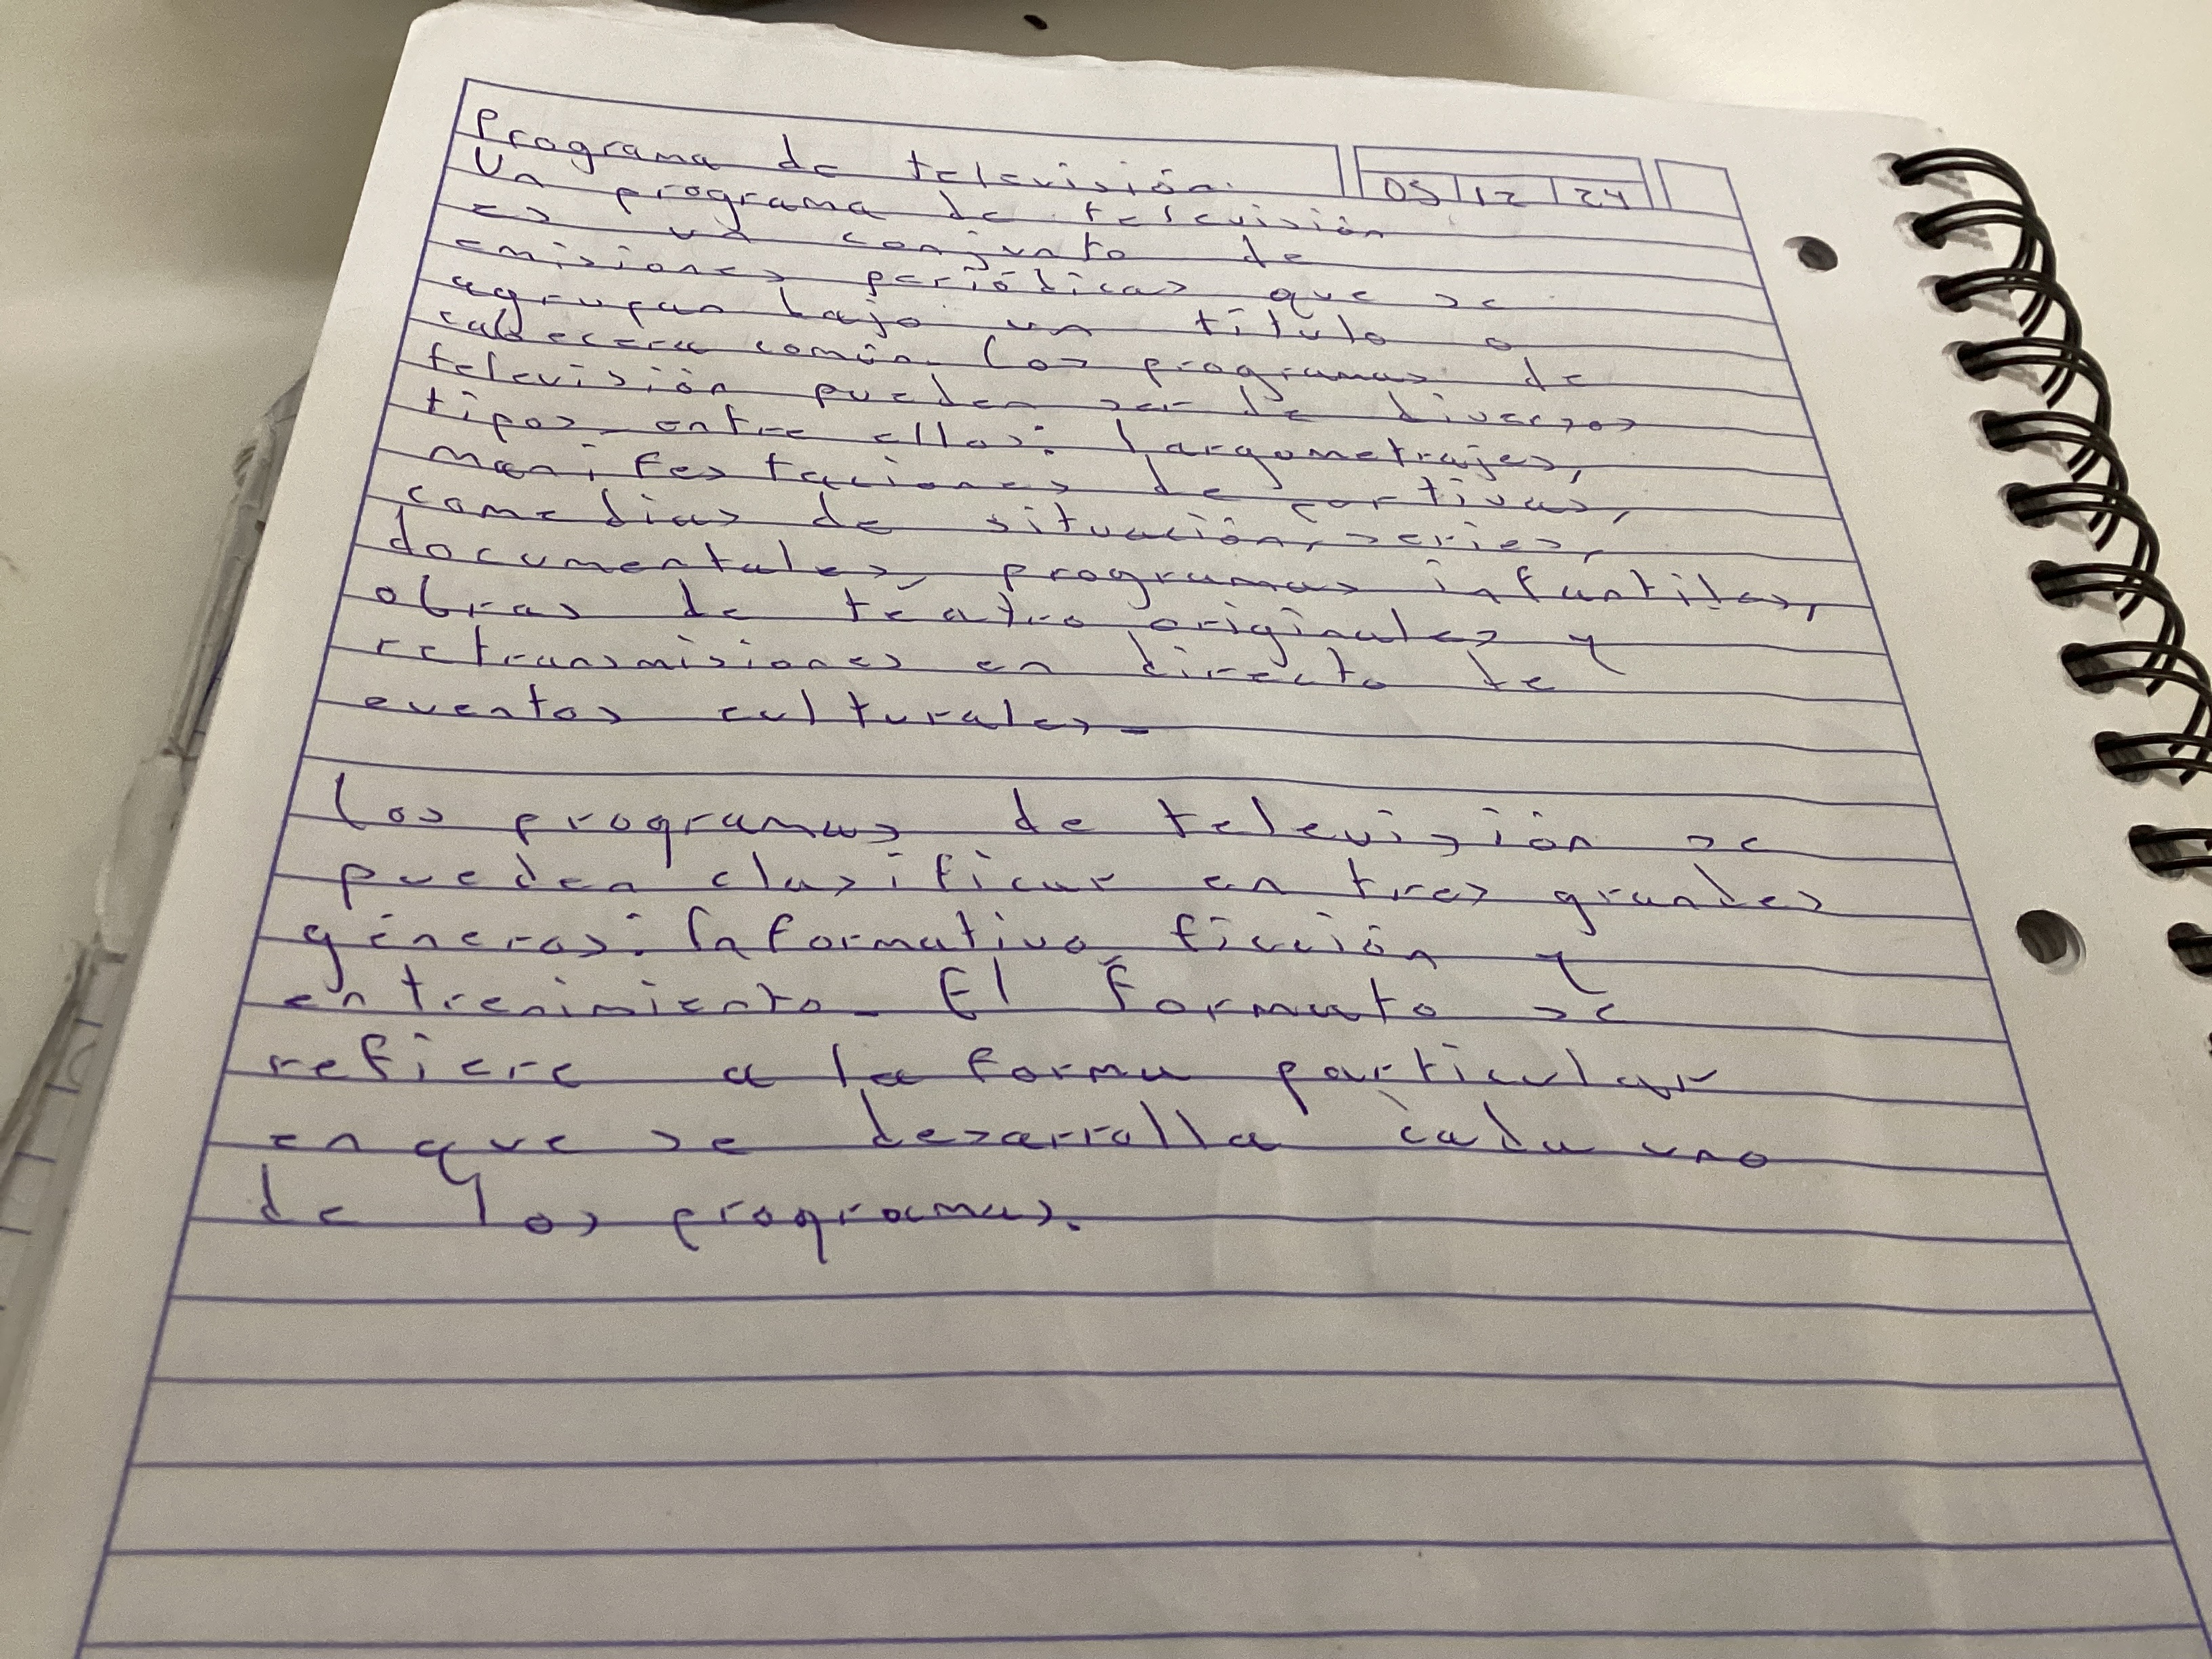 Programa de televisión.
05 12 24
Un programa de televisión
es un conjunto de
emisiones periódicas que se
agrupan bajo un título o
cabecera común. Los programas de
televisión pueden ser de diversos
tipos, entre ellos: largometrajes,
manifestaciones deportivas,
comedias de situación, series,
documentales, programas infantiles,
obras de teatro originales y
retransmisiones en directo de
eventos culturales.
Los programas de televisión se
pueden clasificar en tres grandes
géneros: Informativo, ficción y
entrenimiento. El formato se
refiere a la forma particular
en que se desarrolla cada uno
de los programas.